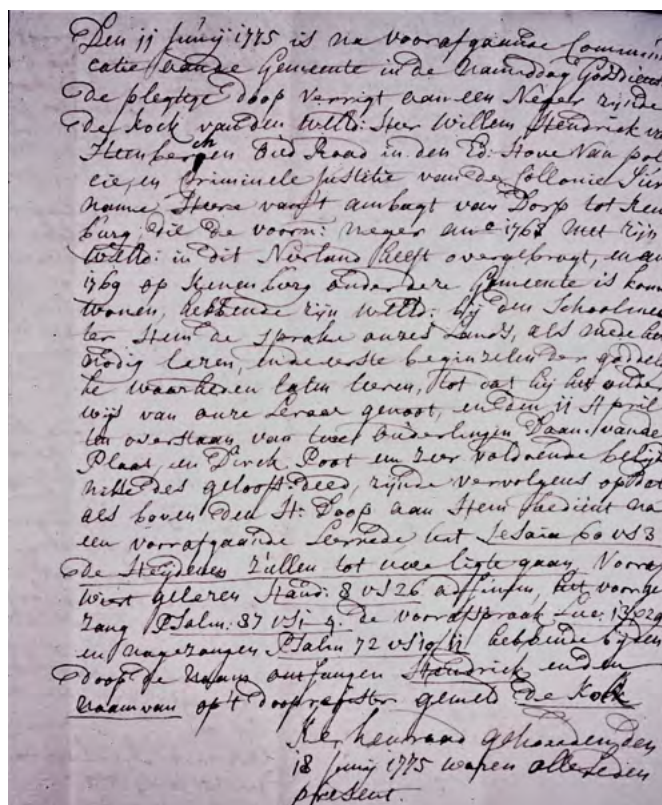 Den 11 Junij 1775 is na voorafgaande Commun
catie vande Gemeente in de Namiddag Godsdiens
De plegtige doop verrigt aan een Neger zijnde
De Kock van den WelEd: Heer Willem Hendrick v
Oud Raad in den Ed: Hove van pol
cie, en Criminele Justitie van de Collonie Suri
name, Heere van't ambagt van Dorp tot Ken
burg, die de voorn: neger anº 1768 met zijn
WelEd: in dit Nerland heeft overgebragt, en an
1769 op Kenenburg onder deze Gemeente is kom
wonen, hebbende zijn WelEd: bij den Schoolmee
ter Hem de sprake onzes Lands, als mede he
nodig lezen, en de eerste beginzelen der goddel
ke waarheden laten leren, tot dat hij het onder
wijs van onze Leraar genoot, en den 11 April
ten overstaan van twee Ouderlingen Daam vande
Plaat, en Dirck Poot een zeer voldoende belijd
nisse des geloofs deed, zijnde vervolgens op dat
als boven den H: Doop aan Hem bedient na
een voorafgaande Leerrede, uit Jesaia 60 vs 3
De Heijdenen zullen tot uwe ligte gaan, Vooraf
wiert gelezen Hand: 8 vs 26 ad finem, het voorge
zang Psalm: 87 vs 1-4. de voorafspraak Luc: 13
en nagezangen Psalm 72 vs 10/11 hebbende bij den
doop de Naam ontfangen Hendrick en den
Naam van op't doopregister gemeld de Kock
Kerkenraad gehouden den
18 Junij 1775 waren alle leden
present.